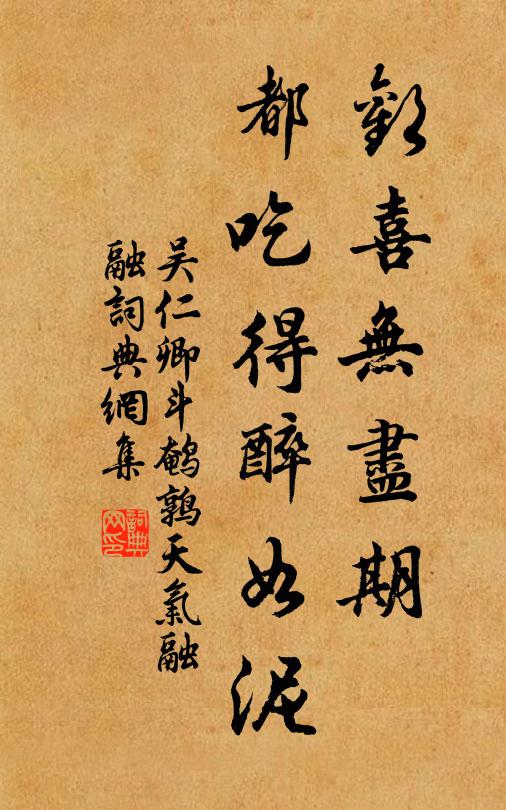 歡喜無盡期
都吃得醉如泥
吴仁卿斗鹌鹑天氣融
融詞典網集
詞典
网印